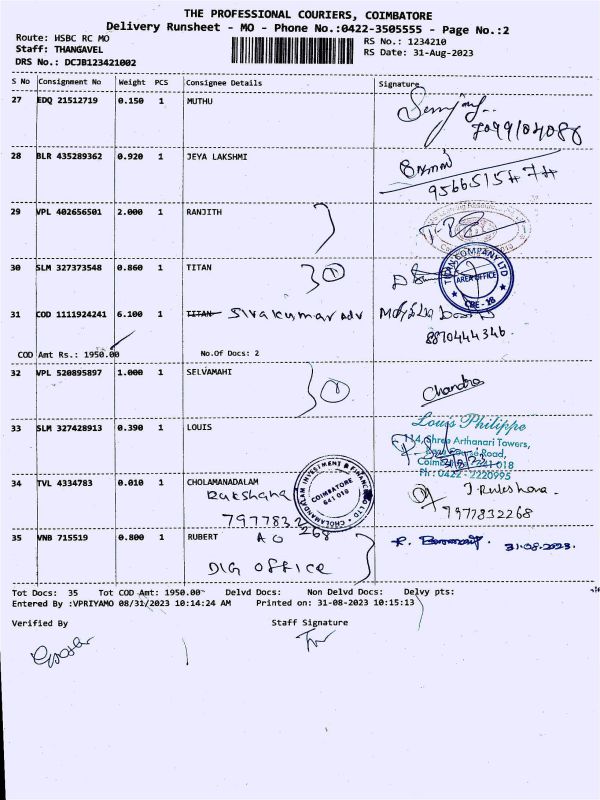 THE PROFESSIONAL COURIERS, COIMBATORE
Delivery Runsheet - MO - Phone No.:0422-3505555 - Page No.:2
Route: HSBC RC MO
RS No.: 1234210
Staff: THANGAVEL
RS Date: 31-Aug-2023
DRS No.: DCJB123421002
S No Consignment No Weight PCS Consignee Details Signature
27 EDQ 21512719 0.150 1 MUTHU
7099104088
28 BLR 435289362 0.920 1 JEYA LAKSHMI
29 VPL 402656501 2.000 1 RANJITH
30 SLM 327373548 0.860 1 TITAN
TITAN COMPANY LTD
AREA OFFICE
CBE - 18
31 COD 1111924241 6.100 1 TITAN Sivakumar Adv
8870444346.
COD Amt Rs.: 1950.00 No.Of Docs: 2
32 VPL 520895897 1.000 1 SELVAMAHI
Chandra
33 SLM 327428913 0.390 1 LOUIS
Louis Philippe
114, Shree Arthanari Towers,
Road,
Coimbatore - 641 018
Ph : 0422 - 2220995
34 TVL 4334783 0.010 1 CHOLAMANADALAM
CHOLAMANDALAM INVESTMENT & FINANCE CO LTD
COIMBATORE
641 018
Rakshana
7977832268
7977832268
35 VNB 715519 0.800 1 RUBERT AO
31.08.2023.
DIG OFFICE
Tot Docs: 35 Tot COD Amt: 1950.00 Delvd Docs: Non Delvd Docs: Delvy pts:
Entered By :VPRIYAMO 08/31/2023 10:14:24 AM Printed on: 31-08-2023 10:15:13
Verified By Staff Signature